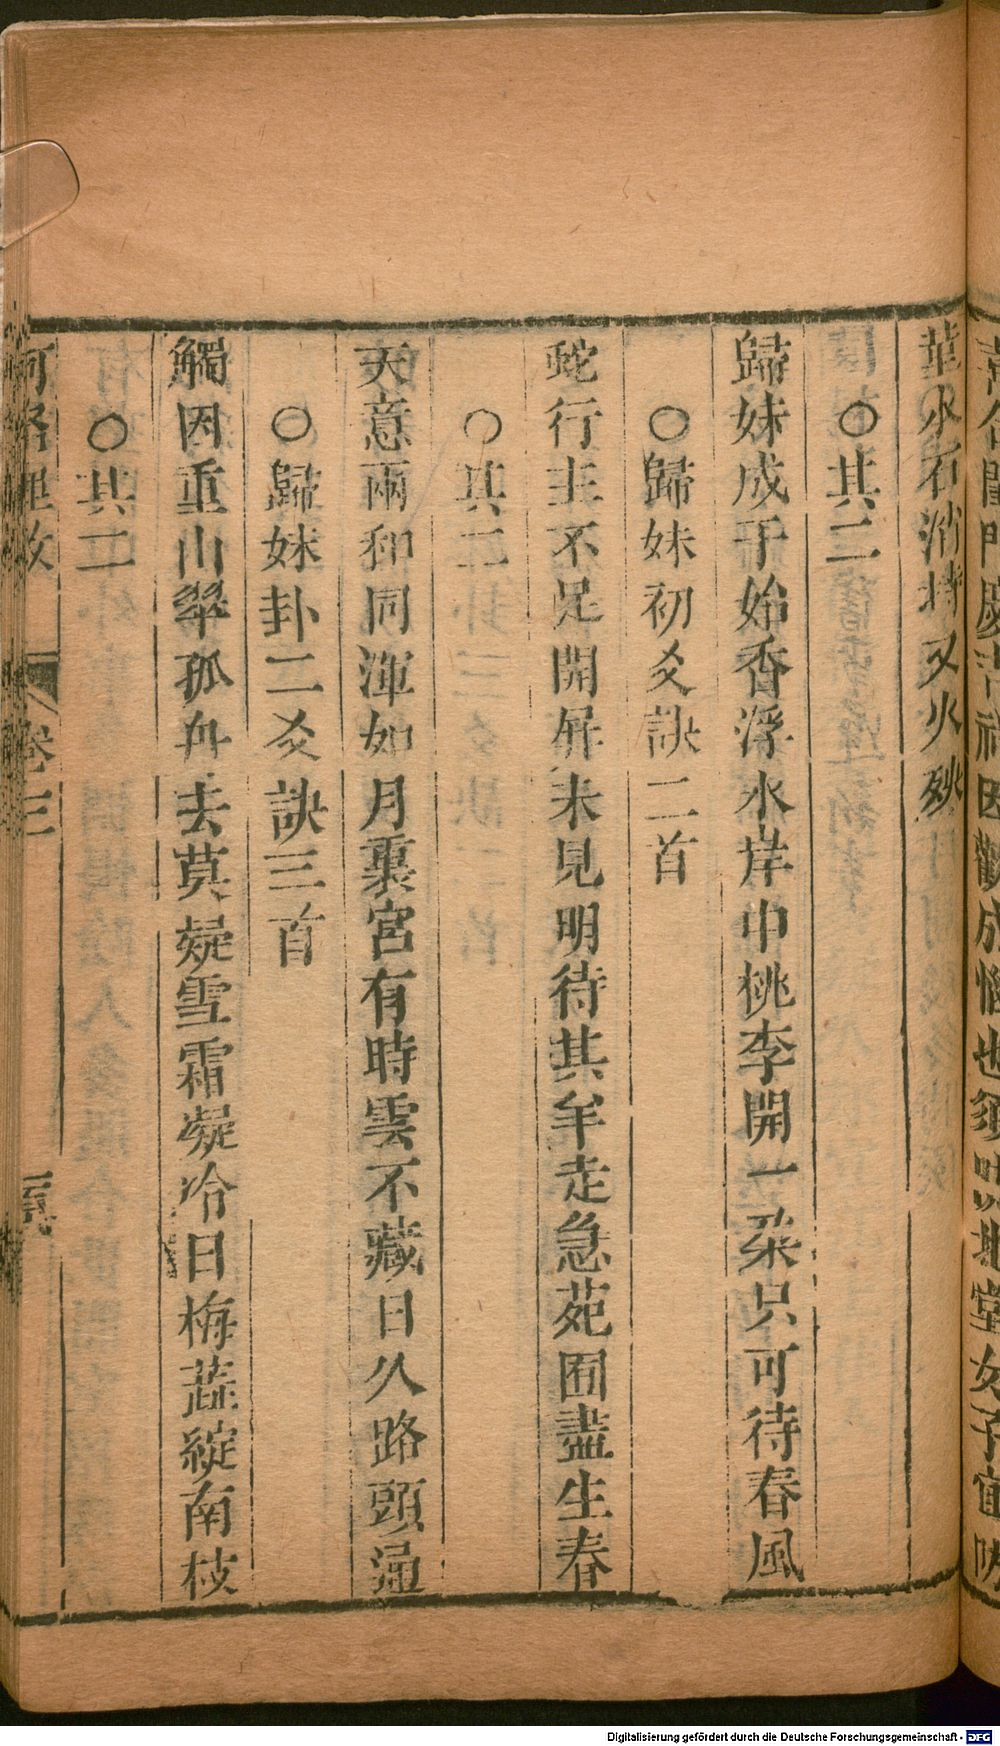 葉水石消持又火殃
○其二
歸妹成于始香浮水岸中桃李開一朶只可待春風
○歸妹初爻訣二首
蛇行主不足開屏未見明待其羊走急苑囿盡生春
○其二
天意兩和同渾如月裏宮有時雲不藏日久路頭通
○歸妹卦二爻訣三首
觸因重山翠孤舟去莫疑雪霜凝冷日梅蕋綻南枝
○其二
河洛理数 卷三
Digitalisierung gefördert durch die Deutsche Forschungsgemeinschaft - DFG